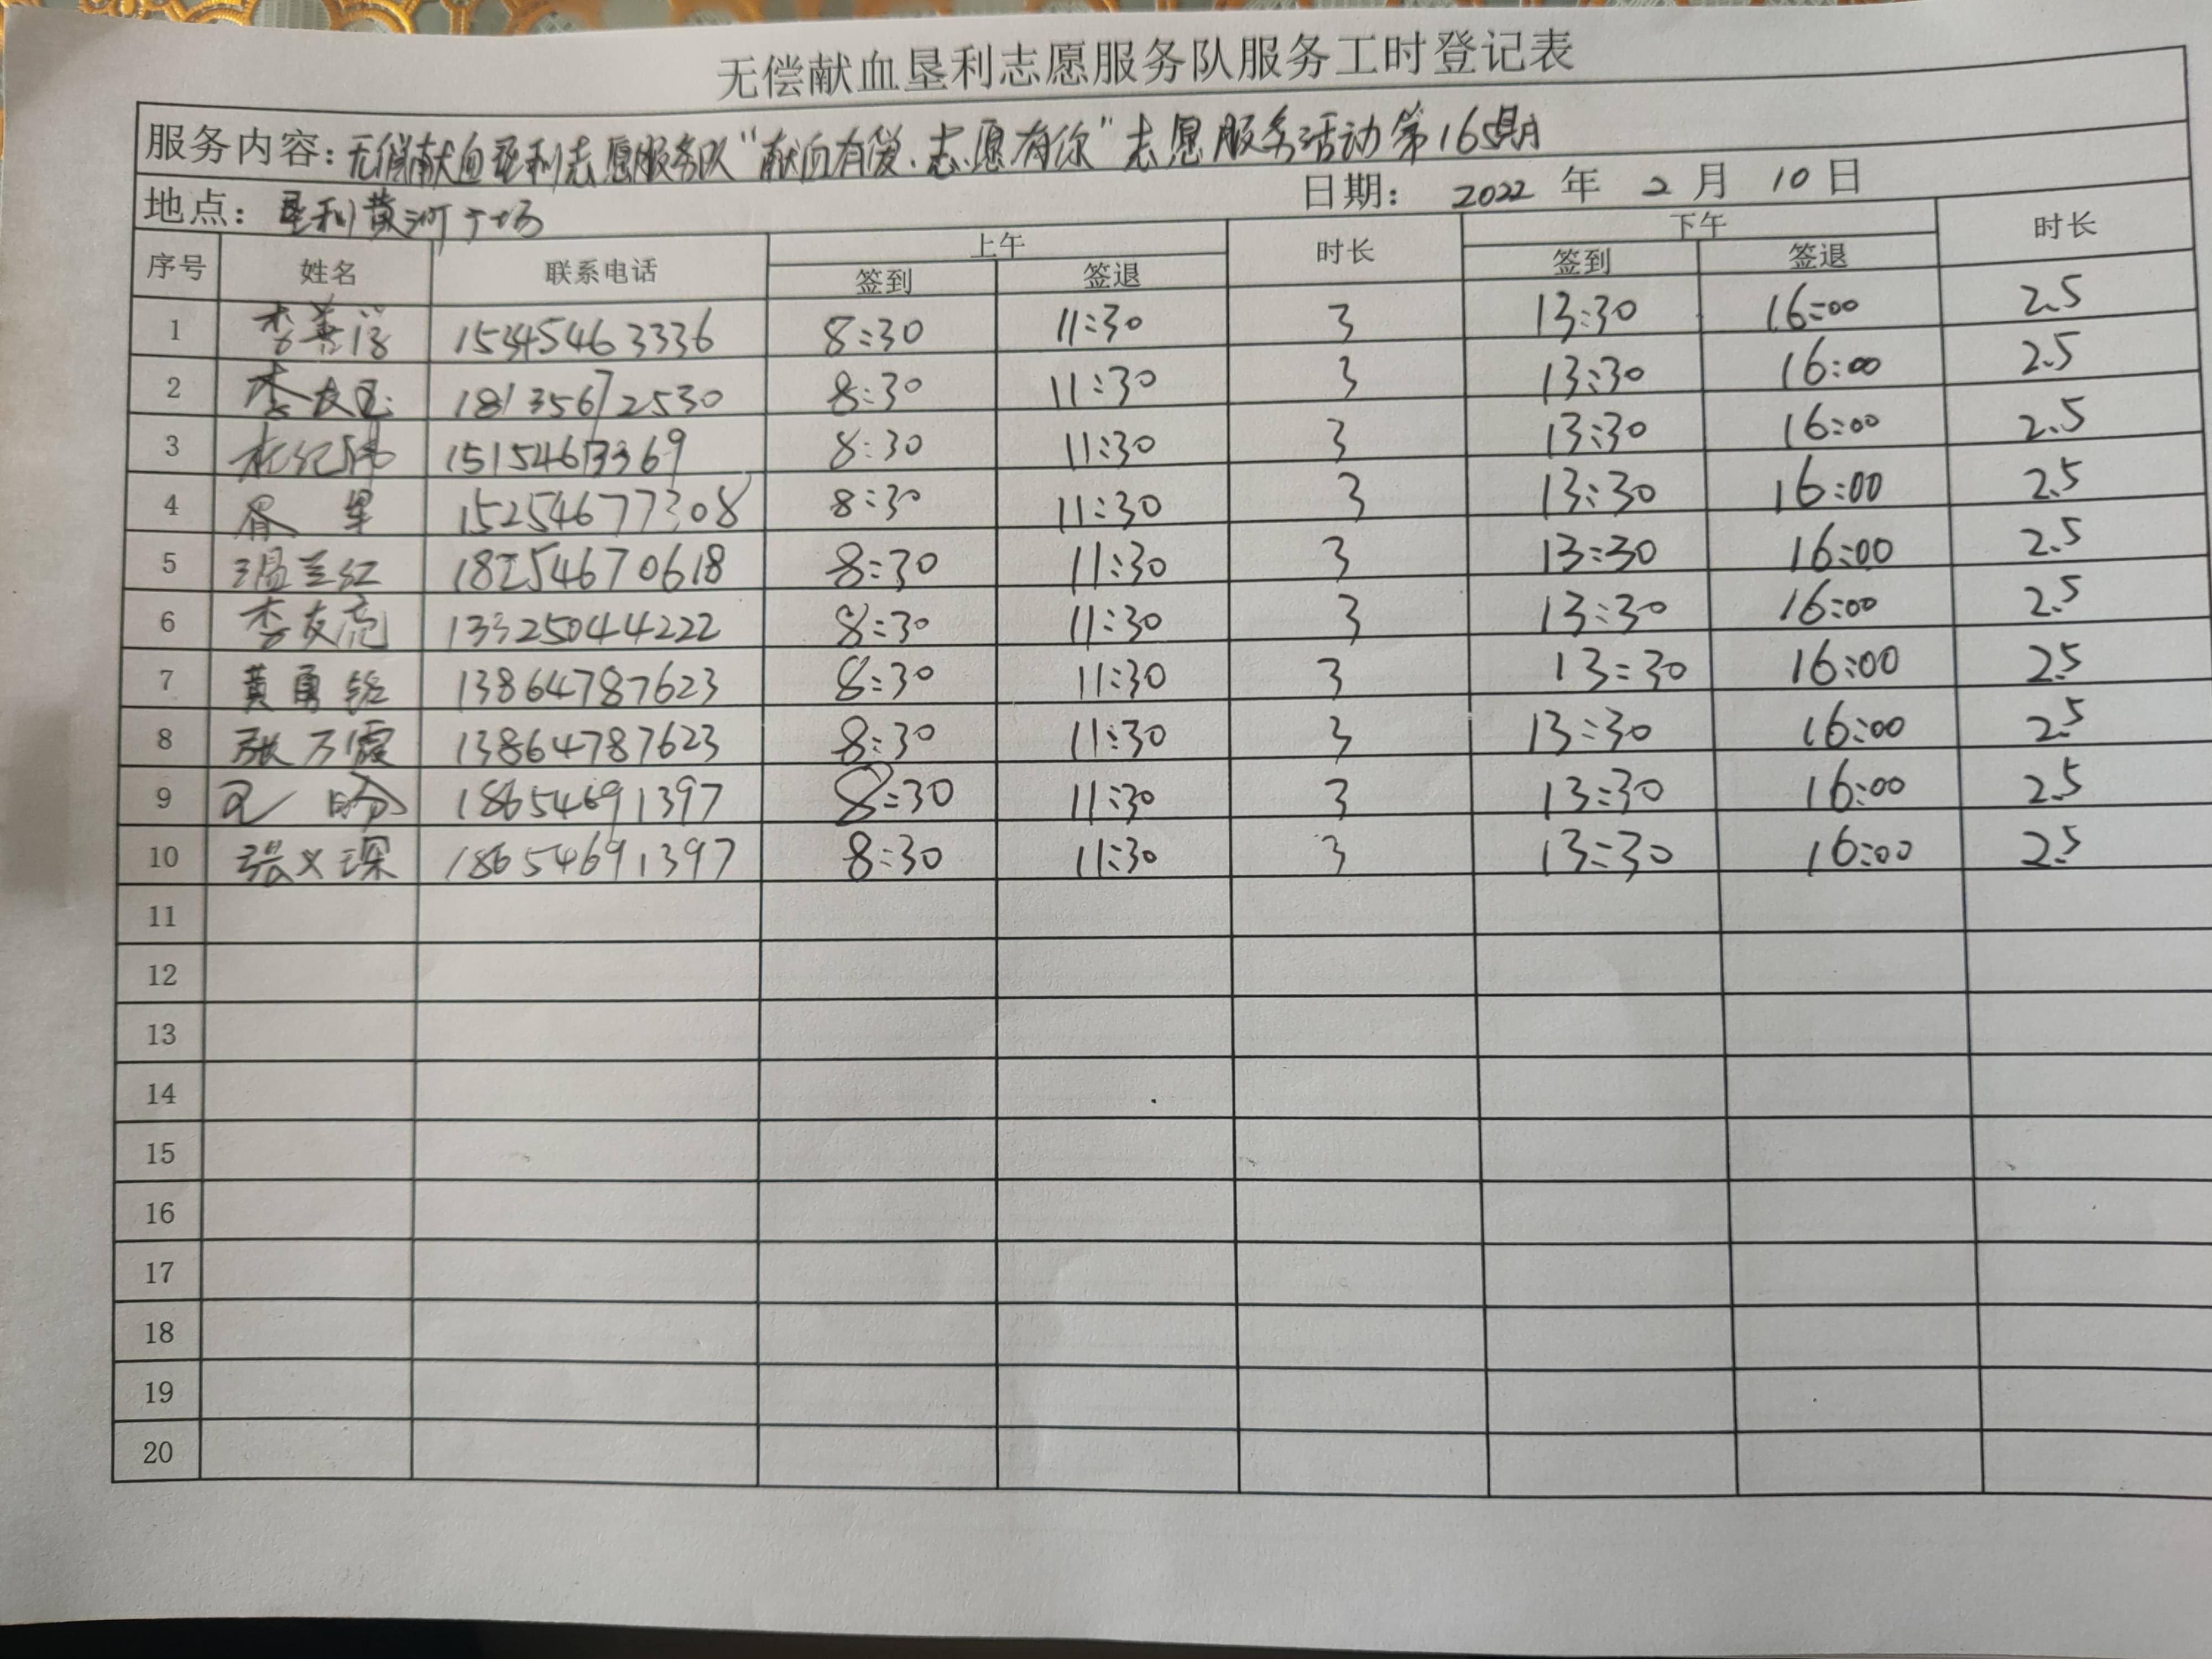 无偿献血垦利志愿服务队服务工时登记表
服务内容：无偿献血垦利志愿服务队“献血有爱.志愿有你”志愿服务活动第165期
地点：垦利黄河广场 日期： 2022 年 2 月 10 日
序号 姓名 联系电话 上午 时长 下午 时长
签到 签退 签到 签退
1 李 15345463336 8:30 11:30 3 13:30 16:00 2.5
2 李友 18135672530 8:30 11:30 3 13:30 16:00 2.5
3 8:30 11:30 3 13:30 16:00 2.5
4 15254677308 8:30 11:30 3 13:30 16:00 2.5
5 温兰红 18254670618 8:30 11:30 3 13:30 16:00 2.5
6 李友亮 13325044222 8:30 11:30 3 13:30 16:00 2.5
7 黄勇 13864787623 8:30 11:30 3 13:30 16:00 2.5
8 张万霞 13864787623 8:30 11:30 3 13:30 16:00 2.5
9 18654691397 8:30 11:30 3 13:30 16:00 2.5
10 张义琛 18654691397 8:30 11:30 3 13:30 16:00 2.5
11
12
13
14
15
16
17
18
19
20